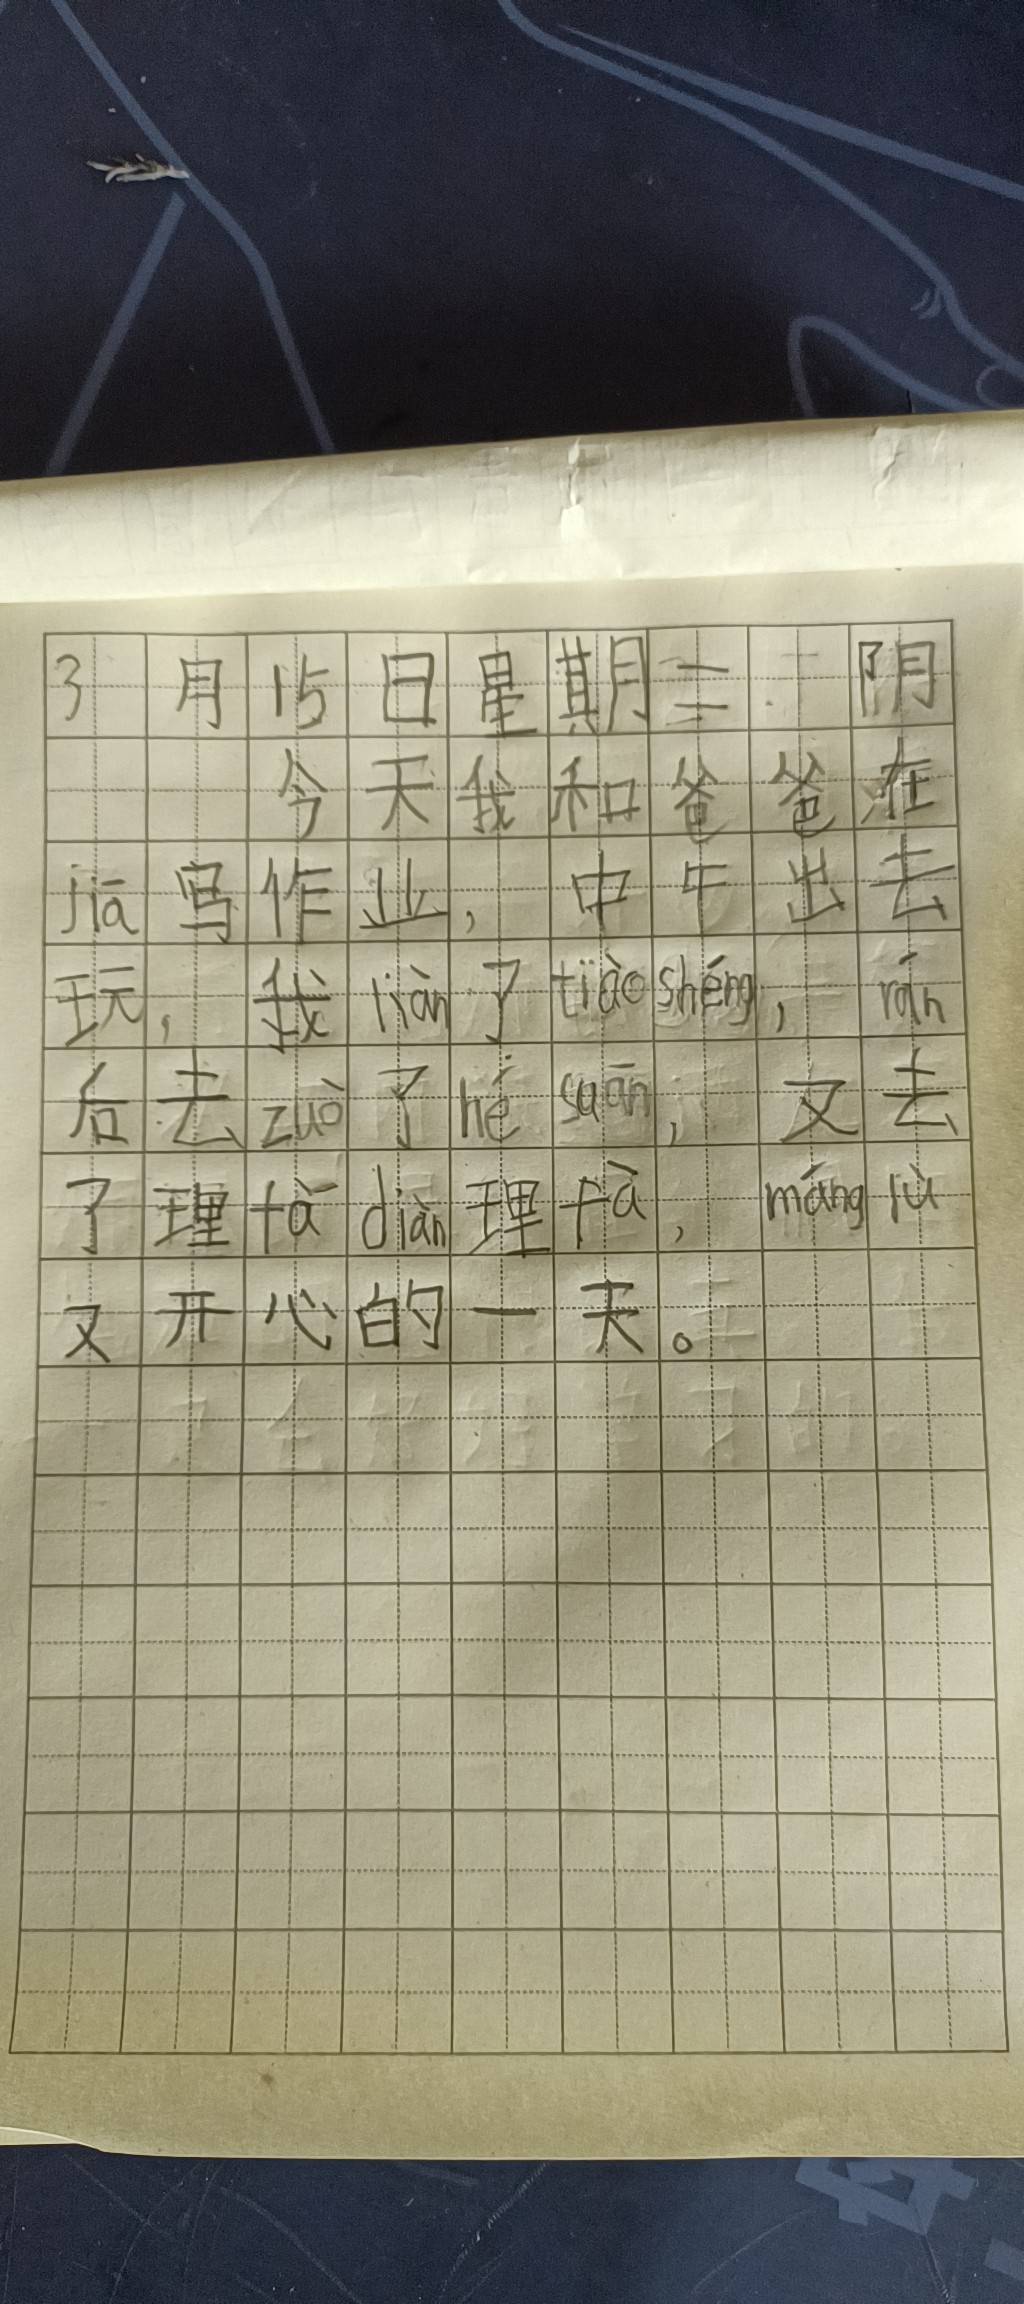 3月15日星期三 阴
今天我和爸爸在
jiā写作业，中午出去
玩，我liàn了tiào shéng，rán
后去zuò了hé suān，又去
了理fà diàn理fà，máng lù
又开心的一天。